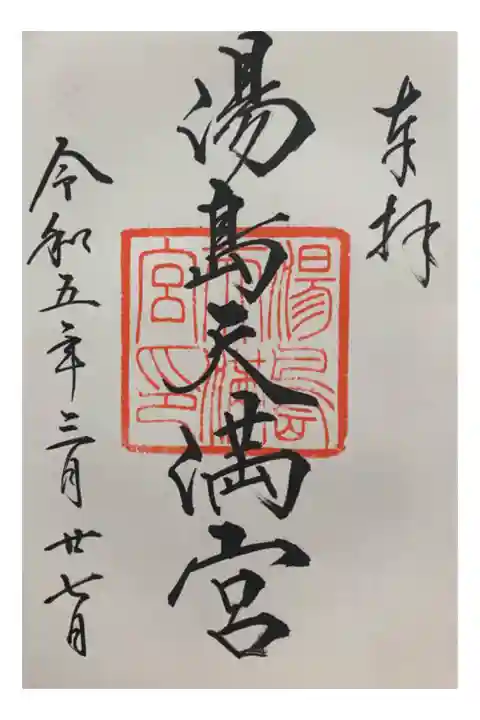 奉拝
湯島天満宮
湯島天満宮印
令和五年三月廿七日